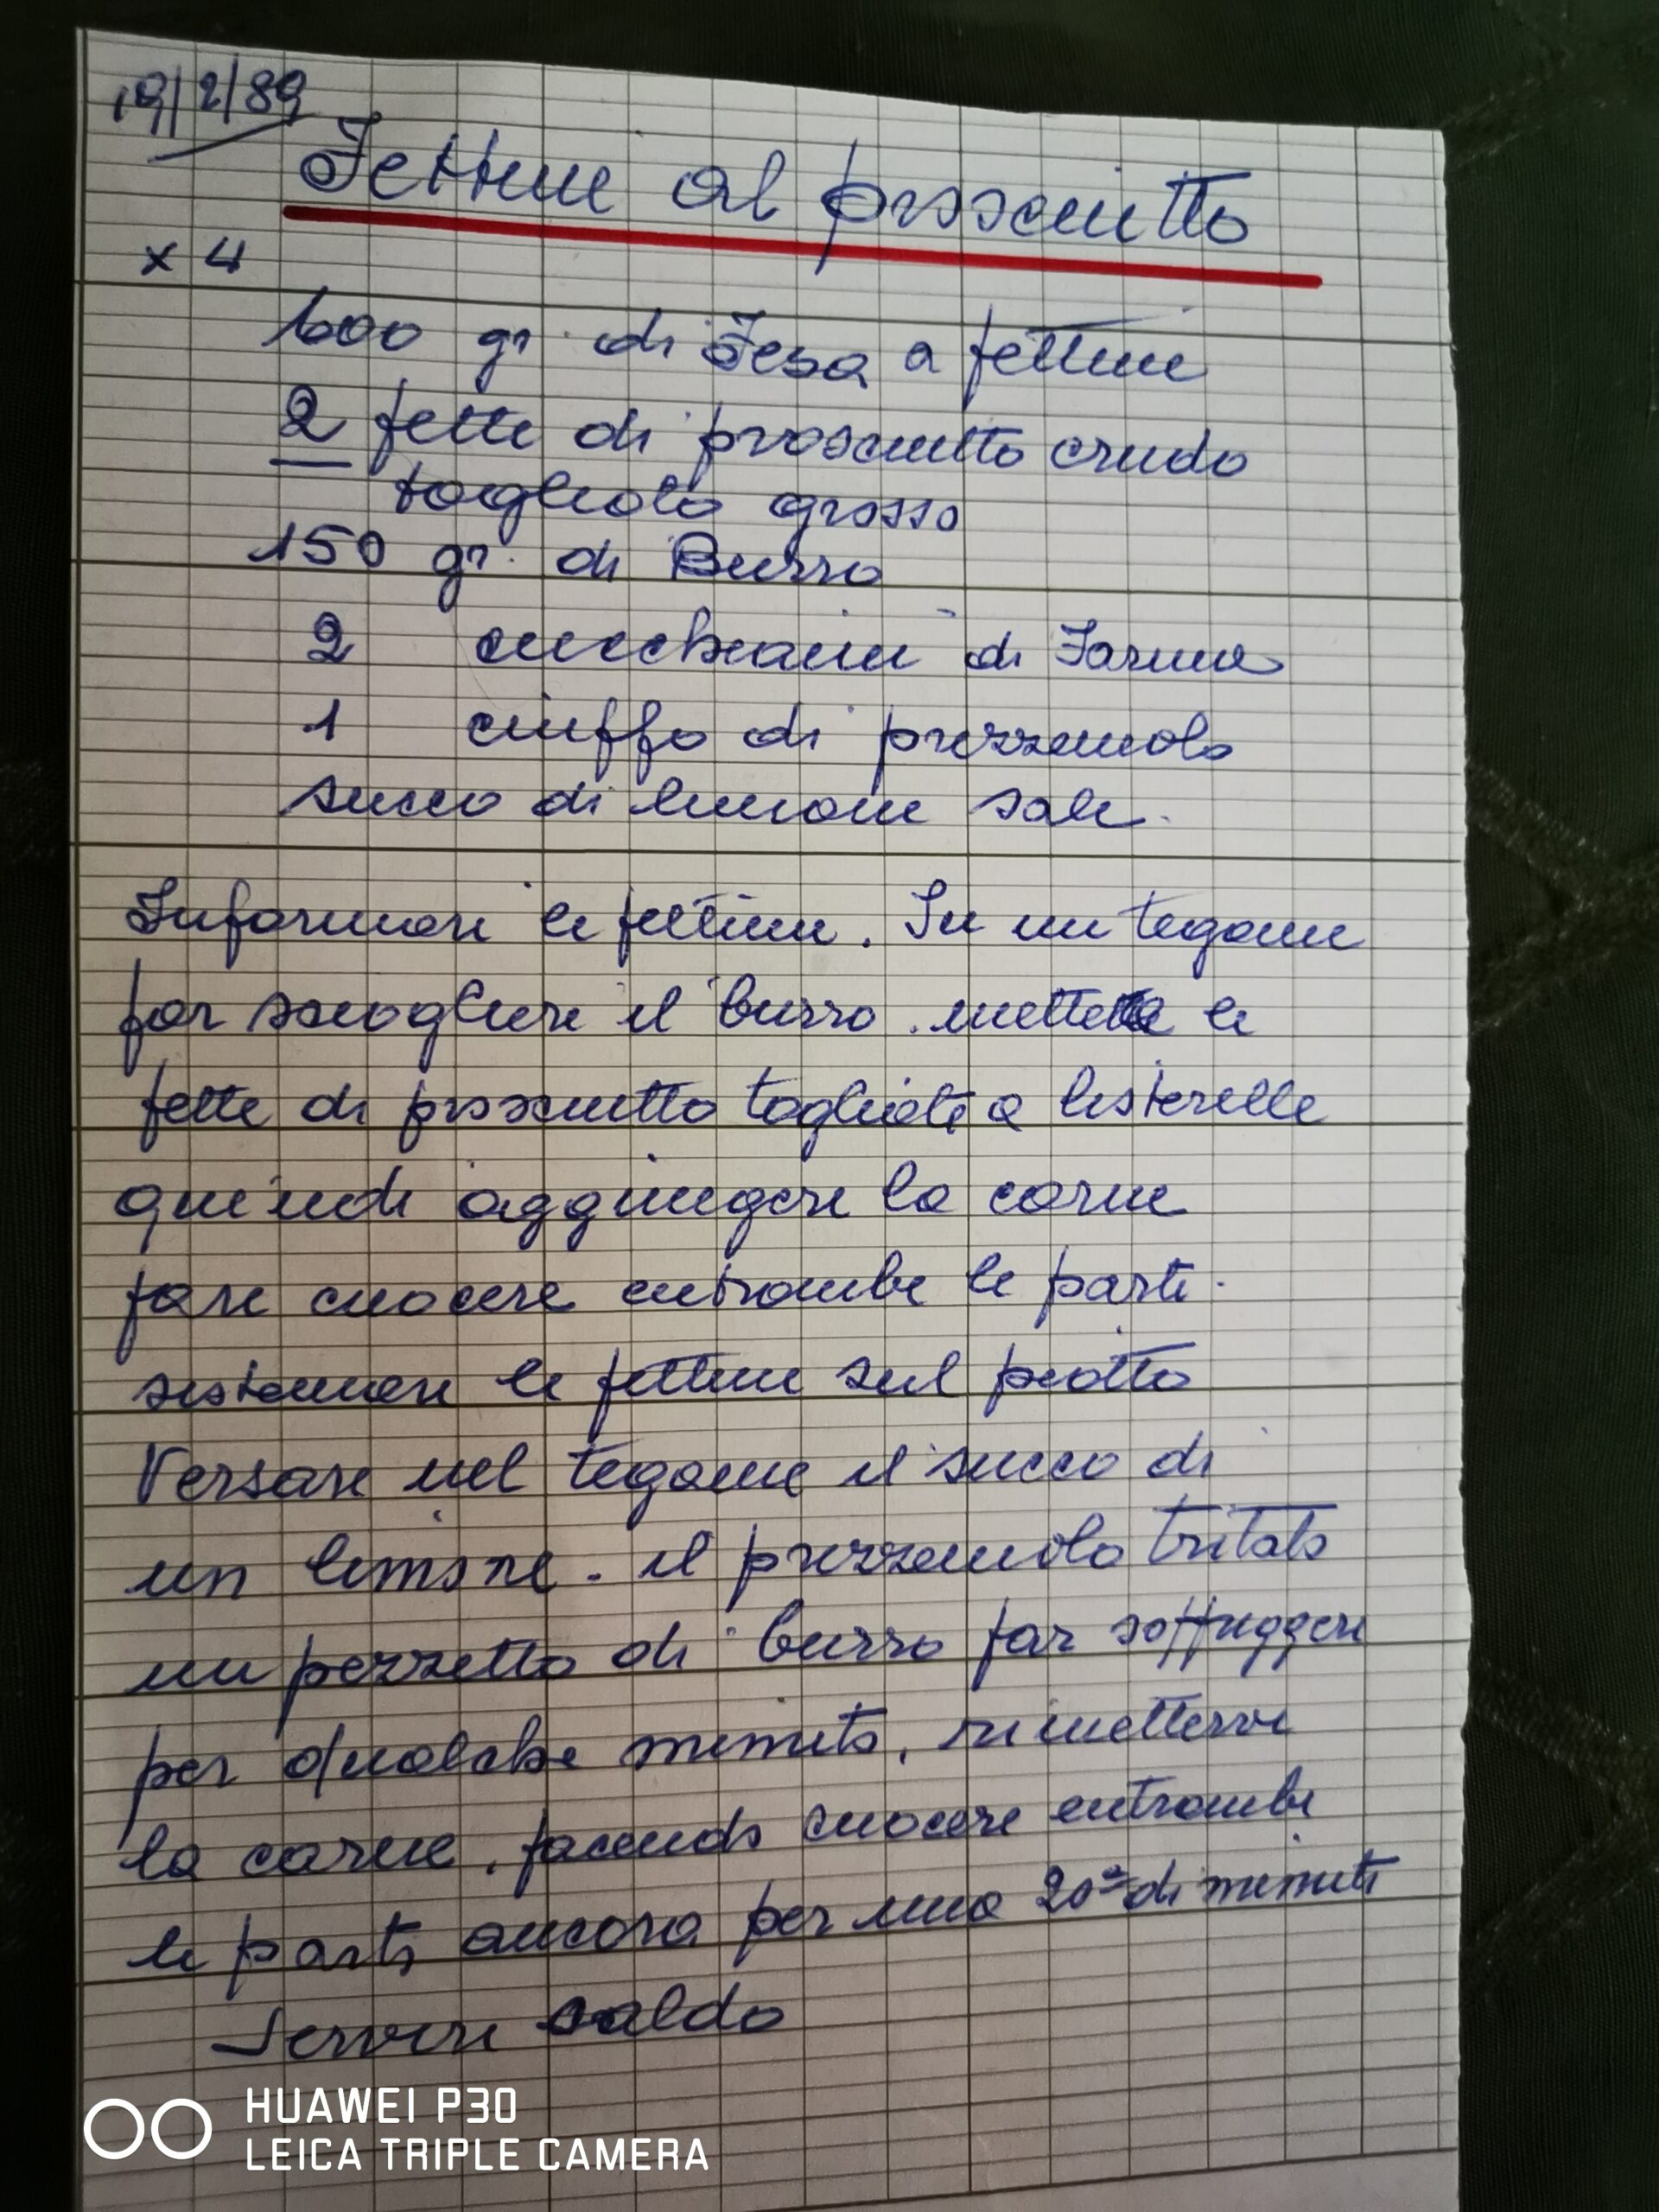 19/2/89
Fettine al prosciutto
x 4
600 gr. di Fesa a fettine
2 fette di prosciutto crudo
tagliato grosso
150 gr. di Burro
2 cucchiaini di Farina
1 ciuffo di prezzemolo
succo di limone sale.
Infarinare le fettine. In un tegame
far sciogliere il burro. mettere le
fette di prosciutto tagliate a listerelle
quindi aggiungere la carne
fare cuocere entrambe le parti.
sistemare le fettine sul piatto
Versare nel tegame il succo di
un limone. il prezzemolo tritato
un pezzetto di burro far soffriggere
per qualche minuto, rimettervi
la carne, facendo cuocere entrambe
le parti ancora per una 20ª di minuti
Servire caldo
HUAWEI P30
LEICA TRIPLE CAMERA